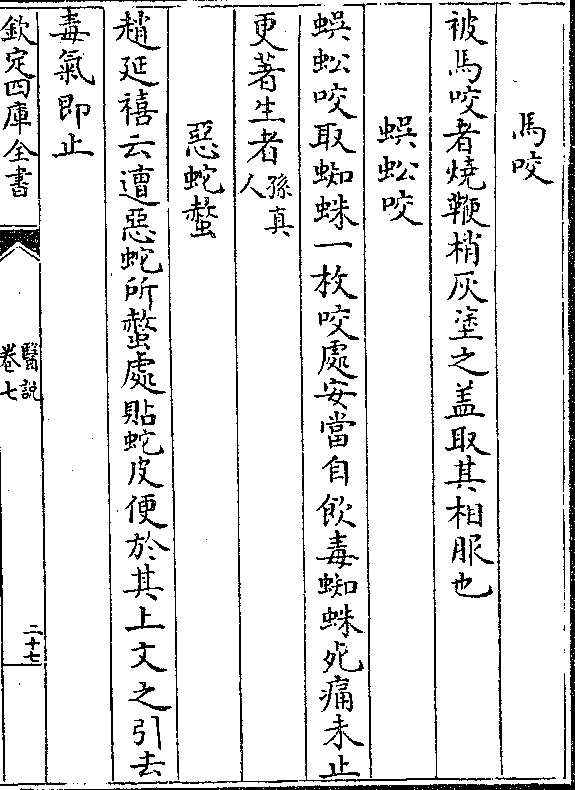 馬咬
被馬咬者燒鞭梢灰塗之盖取其相服也
蜈蚣咬
蜈蚣咬取蜘蛛一枚咬處安當自飲毒蜘蛛死痛未止
更著生者孫真人
惡蛇螫
趙延禧云遭惡蛇所螫處貼蛇皮便於其上文之引去
毒氣即止
欽定四庫全書
醫説
卷七
二十七